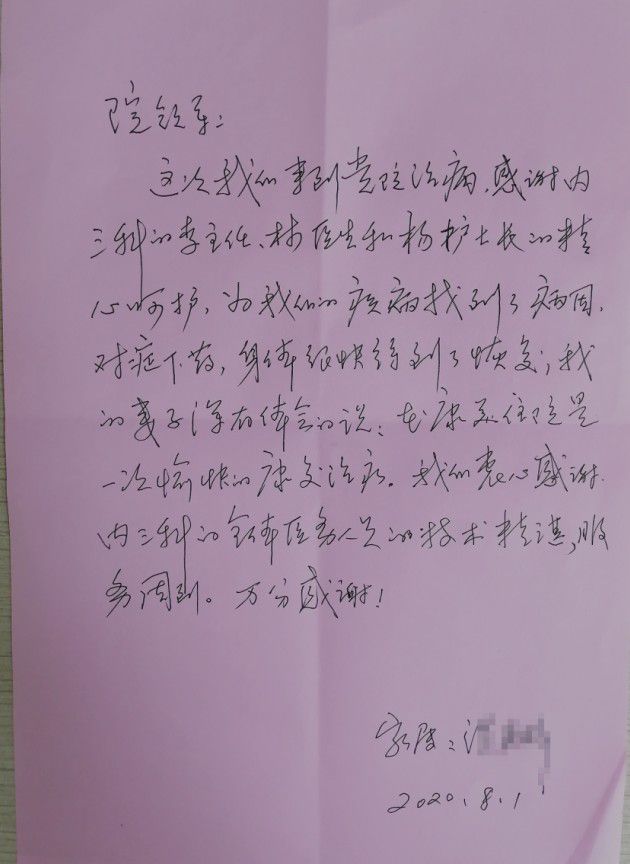 院领导:
这次我们来到贵院治病,感谢内
三科的李主任、林医生和杨护士长的精
心呵护,为我们的疾病找到了病因,
对症下药,身体很快得到了恢复;我
的妻子深有体会的说:在康美住院是
一次愉快的康复治疗。我们衷心感谢
内三科的全体医务人员的技术精湛,服
务周到。万分感谢!
家属:
2020.8.1